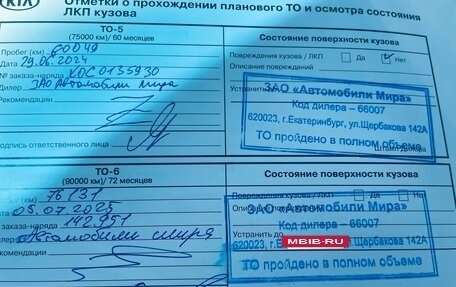 KIA
Отметки о прохождении планового ТО и осмотра состояния
ЛКП кузова
ТО-5
(75000 км)/ 60 месяцев
Состояние поверхности кузова
Пробег (км) 60049
Повреждения кузова / ЛКП Да Нет
Дата 29.06.2024
Описание повреждений
№ заказа-наряда КОС0135930
Дилер ЗАО Автомобили Мира
Устранить
ЗАО «Автомобили Мира»
Код дилера – 66007
620023, г.Екатеринбург, ул.Щербакова 142А
ТО пройдено в полном объеме
Рекомендации
Подпись ответственного лица
Штамп дилера
ТО-6
(90000 км)/ 72 месяцев
Состояние поверхности кузова
Пробег (км) 76131
Повреждения кузова / ЛКП Да Нет
05.07.2025
заказа-наряда 142951
Автомобили мира
Устранить до
ЗАО «Автомобили Мира»
Код дилера – 66007
620023, г.Е Щербакова 142А
ТО пройдено в полном объеме
Рекомендации
MBIB.RU